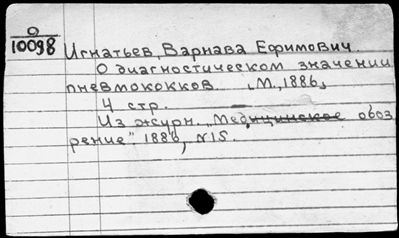 О
10098
Игнатьев, Варнава Ефимович.
О диагностическом значении
пневмококков. [М., 1886]
4 стр.
Из журн. „Медицинское обоз
рение". 1886, N15.